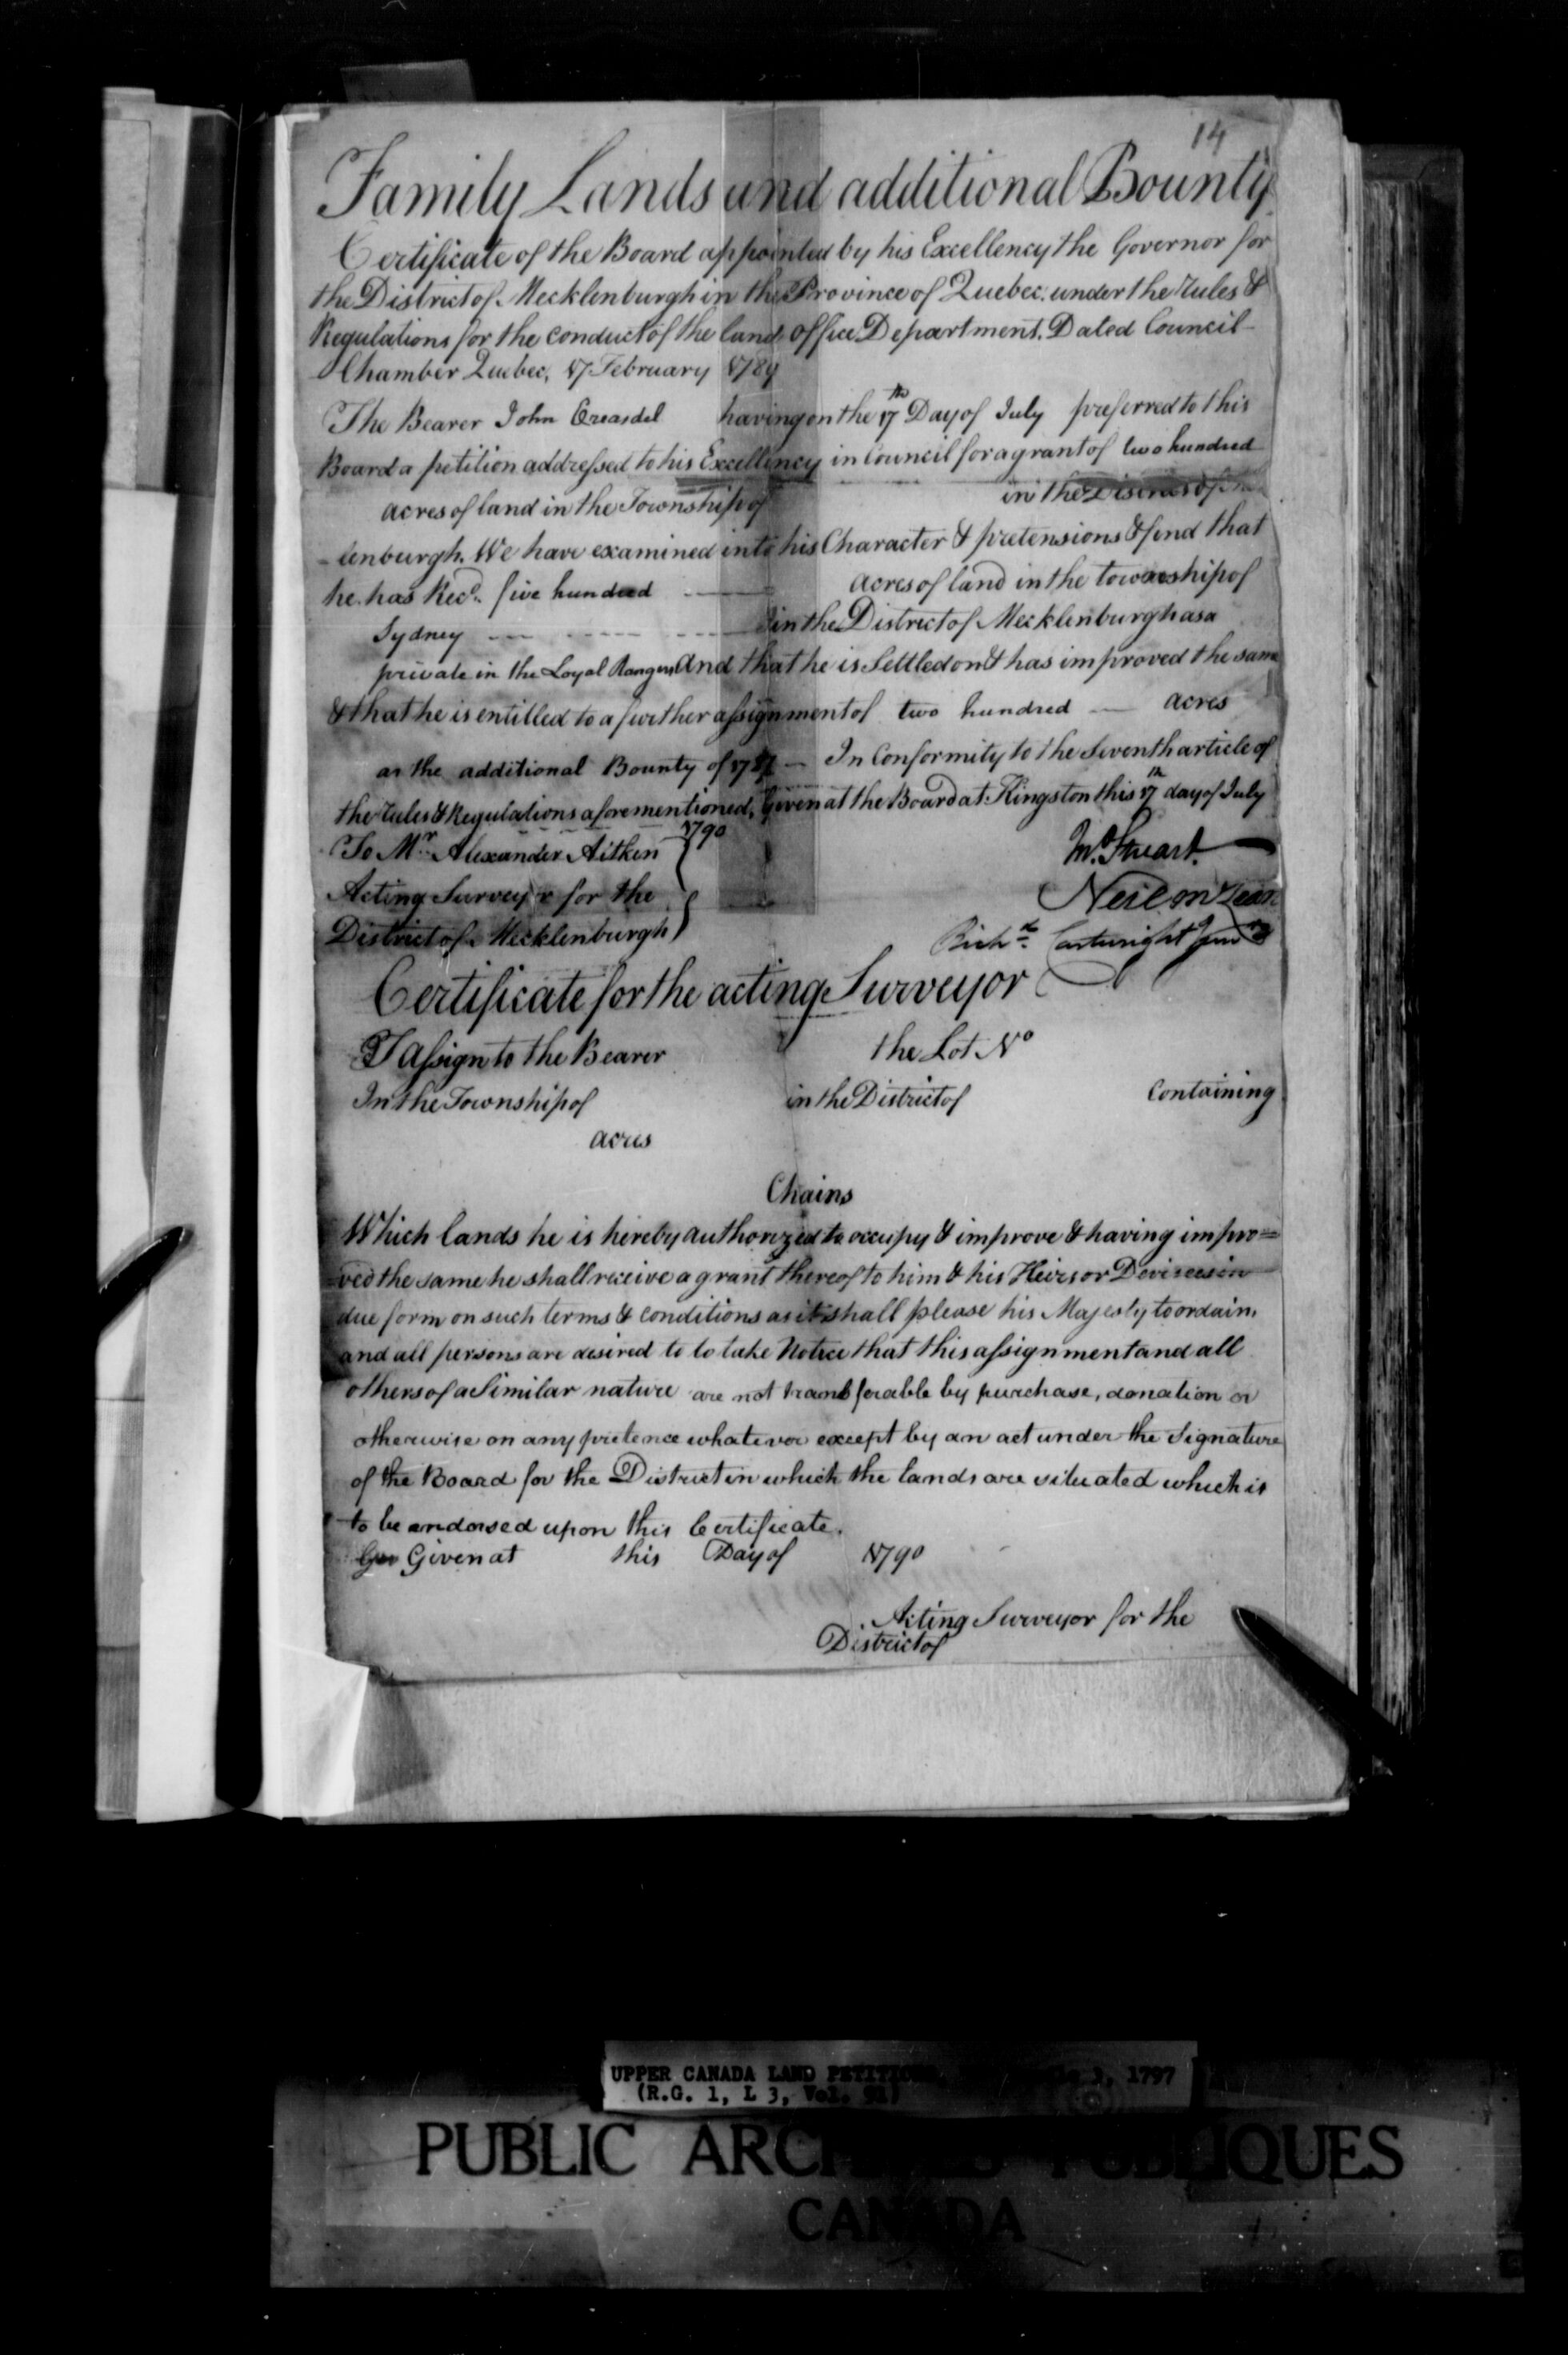 14
Family Lands and additional Bounty
Certificate of the Board appointed by his Excellency the Governor for
the District of Mecklenburgh in the Province of Quebec. under the rules &
Regulations for the conduct of the land office Department. Dated Council
Chamber Quebec, 17 February 1789
The Bearer John having on the 17th Day of July preferred to this
Board a petition addressed to his Excellency in Council for a grant of two hundred
acres of land in the Township of in the District of
-lenburgh. We have examined into his Character & pretensions & find that
he has Recd. five hundred acres of land in the township of
Sydney in the District of Mecklenburgh as a
private in the Loyal Rangers And that he is Settled on & has improved the same
& that he is entitled to a further assignment of two hundred acres
as the additional Bounty of 1787 In Conformity to the Seventh article of
the rules & Regulations aforementioned, Given at the Board at Kingston this 17th day of July
1790
To Mr. Alexander Aitken
Acting Surveyor for the
District of Mecklenburgh
Stuart.
Neil McLean
Richd. Cartwright Junr
Certificate for the acting Surveyor
I assign to the Bearer the Lot No
In the Township of in the District of Containing
acres
Chains
Which lands he is hereby authorized to occupy & improve & having impro=
=ved the same he shall receive a grant thereof to him & his Heirs or Devisees in
due form on such terms & conditions as it shall please his Majesty to ordain,
and all persons are desired to to take Notice that this assignment and all
others of a Similar nature are not transferable by purchase, donation or
otherwise on any pretence whatever except by an act under the Signature
of the Board for the District in which the lands are situated which is
to be endorsed upon this Certificate.
Given at this Day of 1790
Acting Surveyor for the
District of
UPPER CANADA LAND PETITIONS, 3, 1797
(R.G. 1, L 3, Vol. )
PUBLIC ARCHIVES PUBLIQUES
CANADA